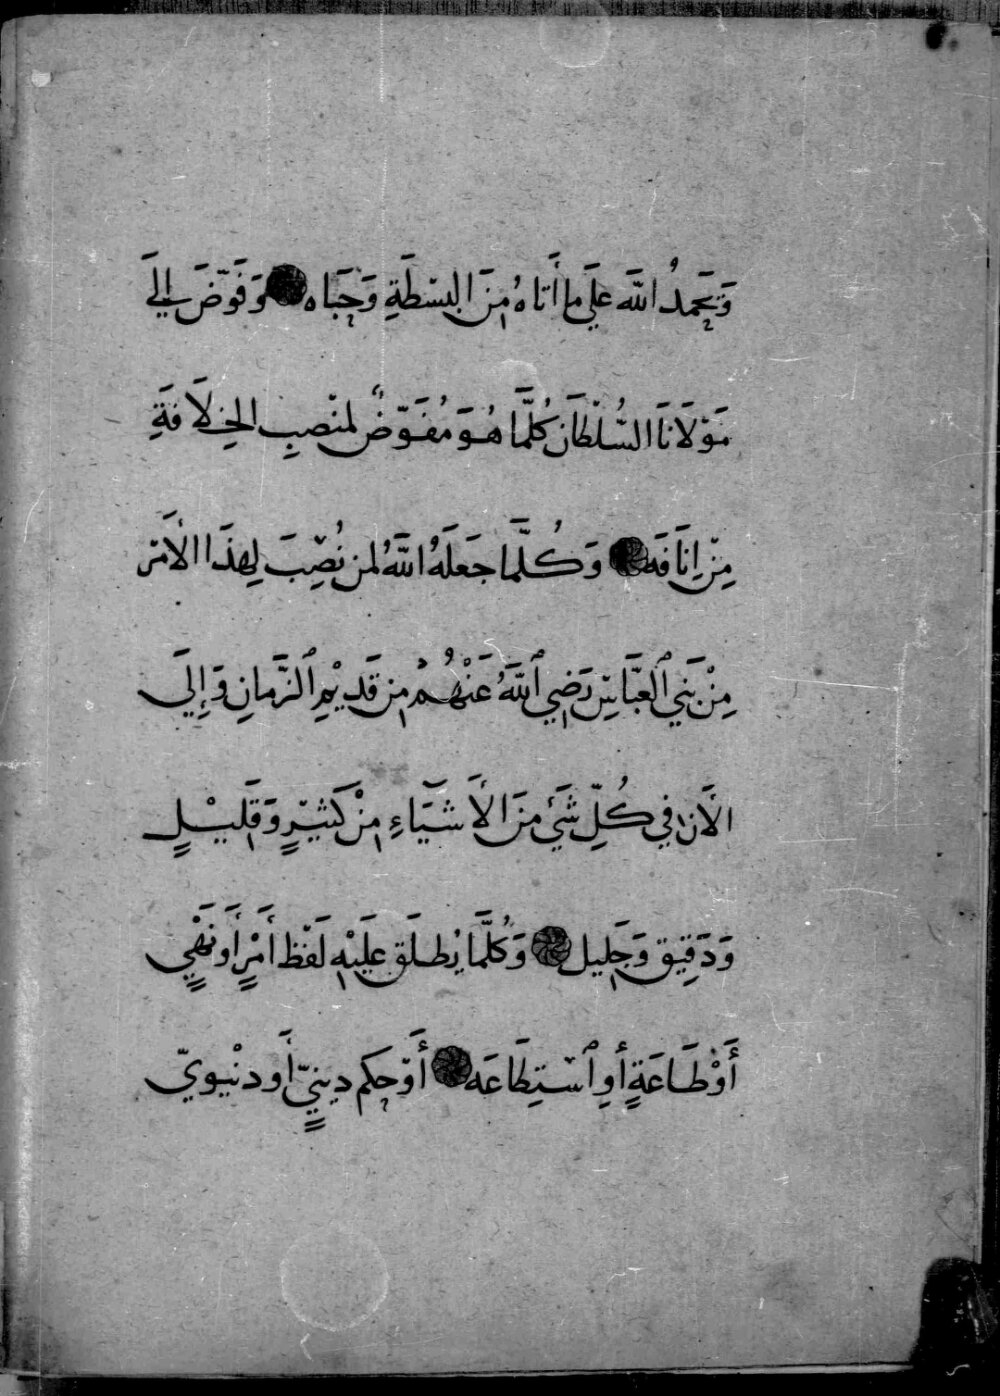 وَيَحْمَدُ اللَّه عَلَى ما أَتَاهُ مِنَ البسْطَةِ وَحَبَاه وَفَوَّضَ إلَى
مَوْلَانَا السُّلْطَان كُلَّمَا هُوَ مُفَوَّضٌ لمنْصبِ الخِلَافَةِ
مِنْ اِنَافَه وَكُلَّما جَعَلَهُ اللَّهُ لمن نُصِّبَ لِهذَا الأَمْر
مِنْ بَني العَبَّاسِ رَضِي ٱللَّهُ عَنْهُمْ مِن قَدِيْمِ ٱلزَّمانِ وَإِلَى
الآن في كُلِّ شَيْءٍ مِنَ الأَشيَاءِ مِنْ كَثِيْرٍ وَقَلِيْلٍ
وَدَقِيق وَجَلِيل وَكُلَّمَا يُطلَق عَلَيْهِ لَفْظ أَمْرٍ أَو نَهْيٍ
أَوْ طَاعَةٍ أوِ ٱسْتِطَاعَه أَوْ حكم دِينيٍّ أَو دنْيويّ